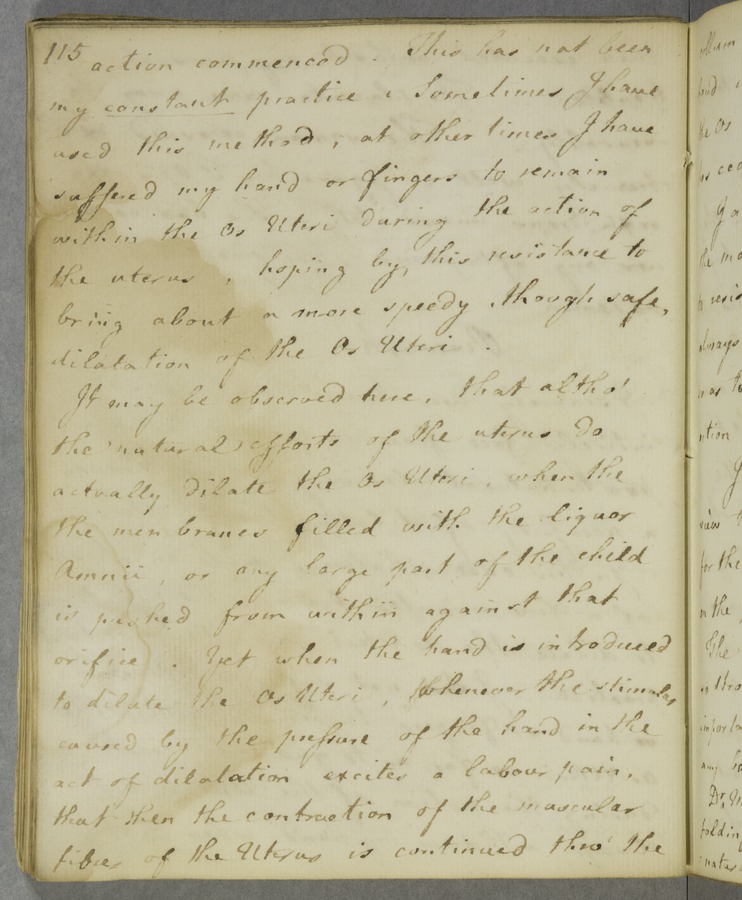 115 action commenced. This has not been
my constant practice; Sometimes I have
used this method; at other times I have
suffered my hand or fingers to remain
within the Os Uteri during the action of
the uterus, hoping by this resistance to
bring about a more speedy, though safe,
dilatation of the Os Uteri.
It may be observed here, that altho'
the natural efforts of the uterus do
actually dilate the Os Uteri, when the
the men branes filled with the liquor
Amnii, or any large part of the child
is pushed from within against that
orifice. Yet when the hand is introduced
to dilate the Os Uteri, Whenever the stimulus
caused by the pressure of the hand in the
act of dilatation excites a labour pain,
that then the contraction of the muscular
fibres of the Uterus is continued thro' the